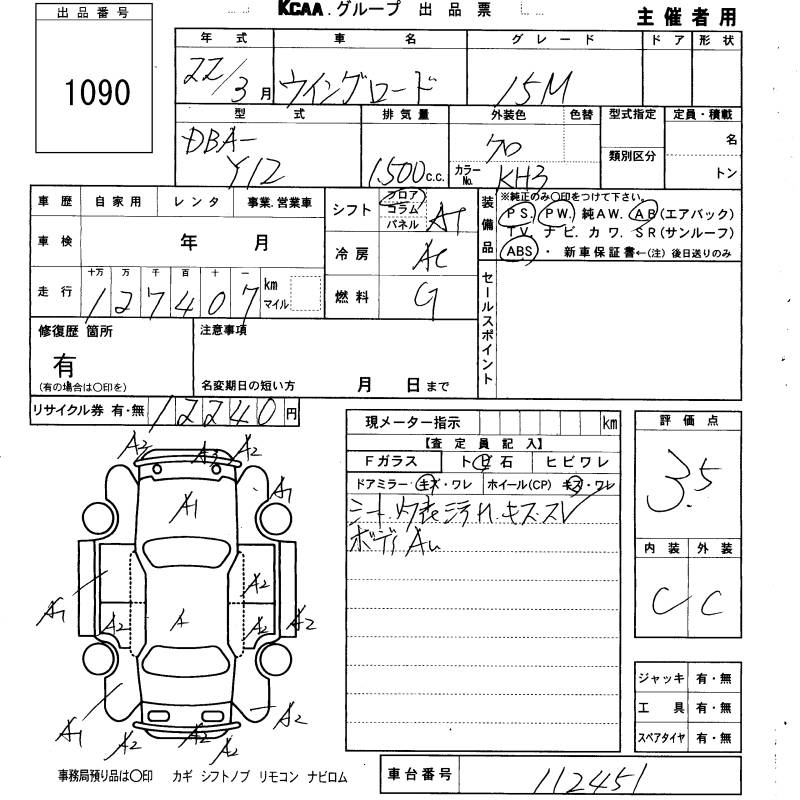 出品番号
1090
KCAA.グループ 出品票
主催者用
年式 車名 グレード ドア 形状
22/3月 ウイングロード 15M
型式 排気量 外装色 色替 型式指定 定員・積載
DBA-
Y12
1500c.c.
カラーNo. KH3
類別区分
名
トン
車歴 自家用 レンタ 事業.営業車
車検 年 月
走行 十万 万 千 百 十 一
127407 km マイル
シフト フロア コラム パネル AT
冷房 AC
燃料 G
装備品
※純正のみ〇印をつけて下さい。
PS. PW. 純AW. AB(エアバック)
TV. ナビ. カワ. SR(サンルーフ)
ABS・新車保証書←(注)後日送りのみ
セールスポイント
修復歴 箇所
有
(有の場合は〇印を)
注意事項
名変期日の短い方 月 日まで
リサイクル券 有・無 12240円
現メーター指示 km
【査定員記入】
Fガラス トビ石 ヒビワレ
ドアミラー・キズ・ワレ ホイール(CP) キズ・ワレ
シート
ボディ
評価点
3.5
内装 外装
C C
ジャッキ 有・無
工具 有・無
スペアタイヤ 有・無
A2 A3 A2
A1 A1
A2
A1 A2 A A2 A2
A1 A2 A2 A2
事務局預り品は〇印 カギ シフトノブ リモコン ナビロム
車台番号 112451